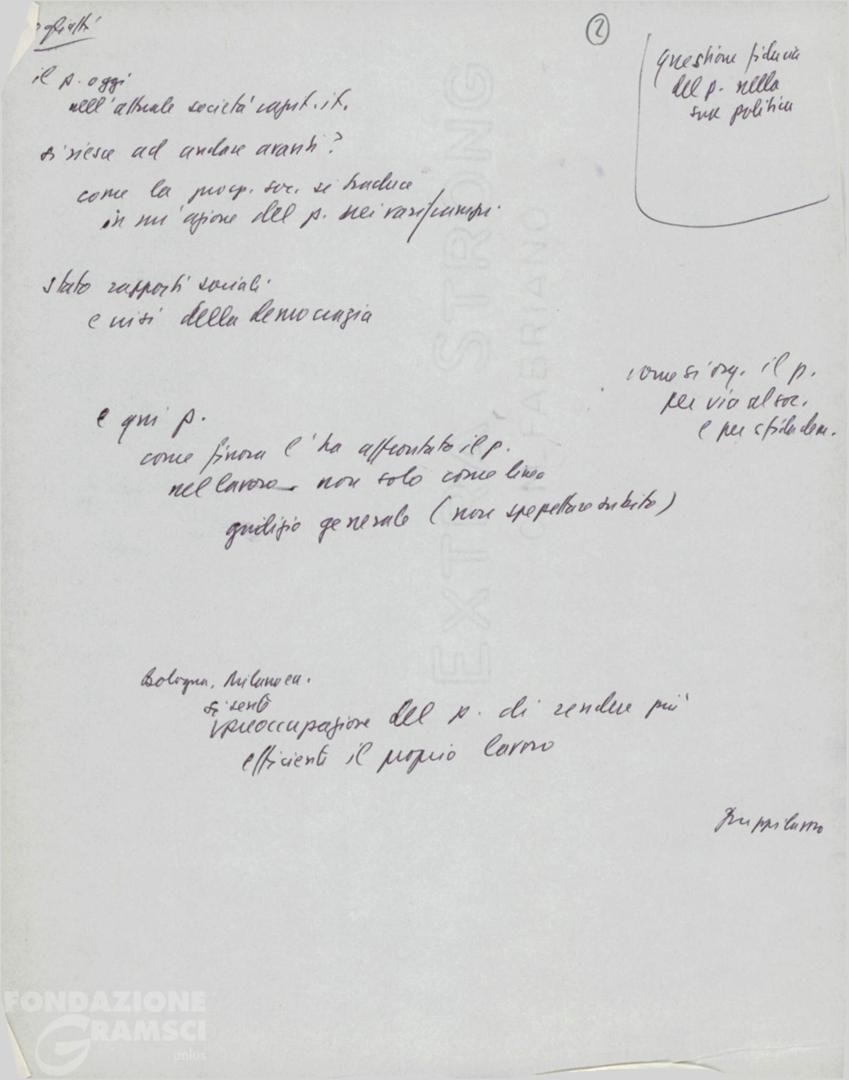 ogliatti
2
questione fiducia
del p. nella
sua politica
il p. oggi
nell'attuale società capit. it.
si riesce ad andare avanti?
come la prosp. soc. si traduce
in un'azione del p. nei vari campi.
stato rapporti sociali
e crisi della democrazia
come si org. il p.
per via al soc.
e per
e qui p.
come finora l'ha affrontato il p.
nel lavoro non solo come linea
giudizio generale (non subito)
Bologna, Milano
si sente
preoccupazione del p. di rendere più
efficienti il proprio lavoro
EXTRA STRONG
FABRIANO
FONDAZIONE
GRAMSCI
onlus